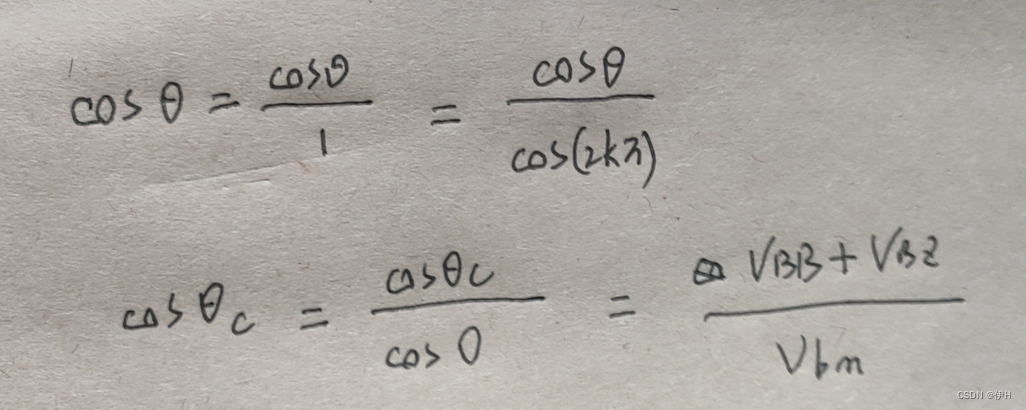 cosθ = cosθ / 1 = cosθ / cos(2kπ)
cosθc = cosθc / cos 0 = VBB + VBZ / Vbm
CSDN @伊H